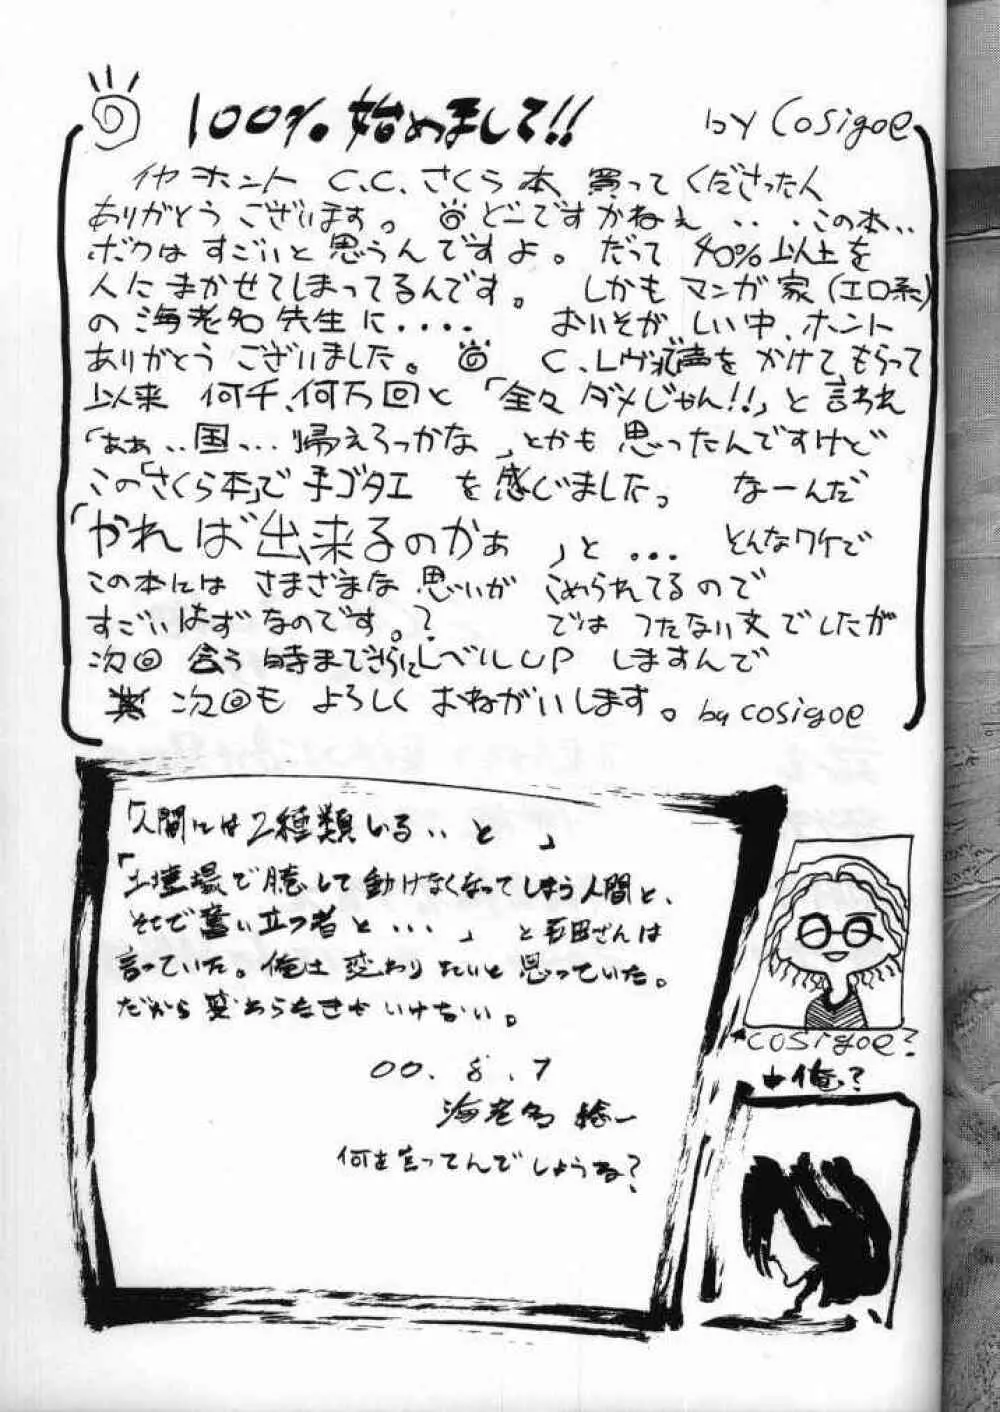 100% 始めまして!!
by Cosigoe
イヤ ホント C.C.さくら 本、買って くださった人
ありがとう ございます。 どーですかねぇ ・・・この本・・
ボクは すごいと 思うんですよ。 だって 40%以上を
人に まかせてしまってるんです。 しかも マンガ家(エロ系)
の 海老名 先生に・・・・ おいそがしい中、ホント
ありがとう ございました。 C.レヴォで声を かけて もらって
以来 何千、何万回と 「全々 ダメじゃん!!」と 言われ
「あぁ・・国・・・帰えろっかな」とかも 思ったんですけど
この「さくら本」で 手ゴタエ を 感じましたっ なーんだ
「やれば出来るのかぁ」と・・・ とんなワケで
この本には さまざまな 思いが こめられてるので
すごいはずなのです。? では つたない文でしたが
次回 会う 時までさらにレベルUP しますんで
次回も よろしく おねがいします。 by cosigoe
「人間には2種類いる・・と」
「土壇場で臆して動けなくなってしまう人間と、
そこで奮い立つ者と・・・」と石田さんは
言っていた。俺は 変わりたいと思っていた。
だから 変わらなきゃいけない。
00.8.7
海老名 稔一
何を言ってんでしょうね?
cosigoe?
俺?